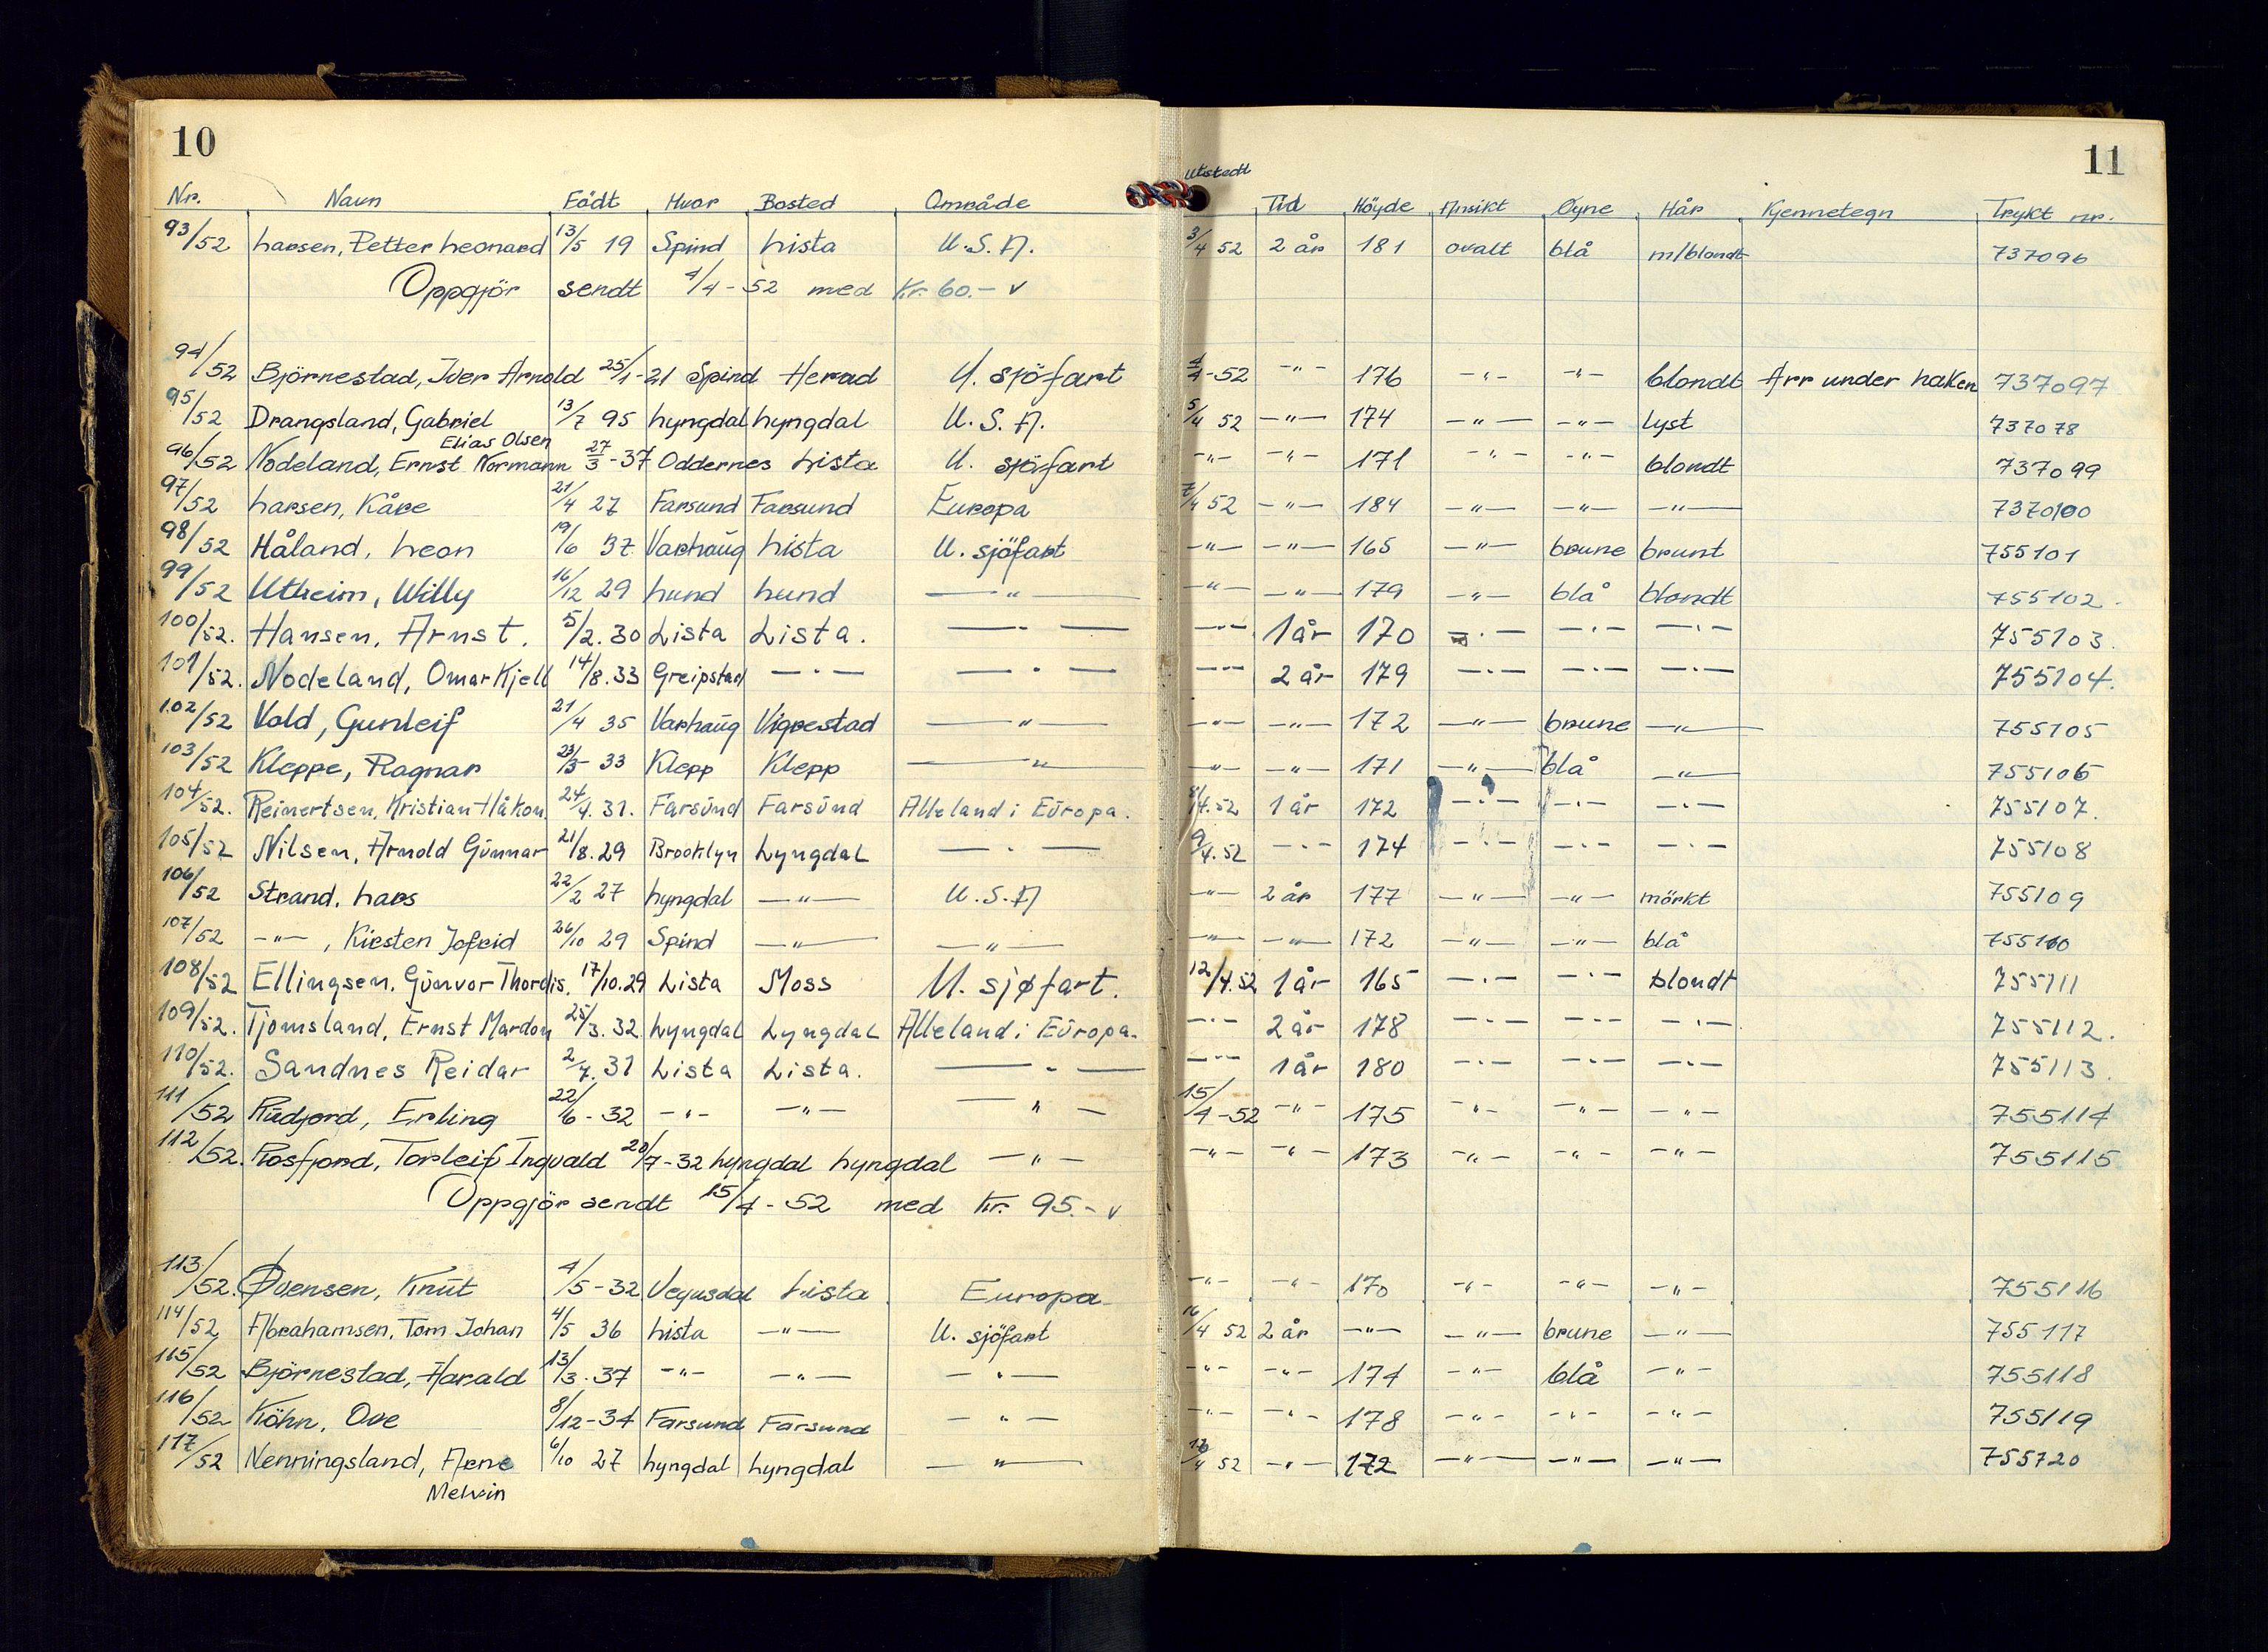 10
11
Nr. Navn Födt Hvor Bosted Område Utstedt Tid Höyde Ansikt Öyne Hår Kjennetegn Trykt nr.
93/52 Larsen, Petter Leonard 13/5 19 Spind Lista U.S.A. 3/4 52 2 år 181 ovalt blå m/blondt 737096
Oppgjör sendt 4/4-52 med Kr. 60.- v
94/52 Björnestad, Iver Arnold 25/1-21 Spind Herad U. sjöfart 4/4-52 -"- 176 -"- -"- blondt Arr under haken 737097
95/52 Drangsland, Gabriel 13/7 95 Lyngdal Lyngdal U.S.A. 5/4 52 -"- 174 -"- -"- lyst 737078
Elias Olsen
96/52 Nodeland, Ernst Normann 27/3-37 Oddernes Lista U. sjöfart -"- -"- 171 -"- -"- blondt 737099
97/52 Larsen, Kåre 21/4 27 Farsund Farsund Europa 7/4 52 -"- 184 -"- -"- -"- 737100
98/52 Håland, Leon 19/6 37 Varhaug Lista U. sjöfart -"- -"- 165 -"- brune brunt 755101
99/52 Utheim, Willy 16/12 29 Lund Lund -"- -"- -"- 179 -"- blå blondt 755102.
100/52. Hansen, Arnst. 5/2.30 Lista Lista. -"- -"- 1 år 170 -"- -"- -"- 755103.
101/52. Nodeland, Omar Kjell 14/8.33 Greipstad -"- -"- -"- 2 år 179 -"- -"- -"- 755104.
102/52 Vold, Gunleif 21/4 35 Varhaug Vigrestad -"- -"- -"- 172 -"- brune -"- 755105
103/52 Kleppe, Ragnar 23/3-33 Klepp Klepp -"- -"- -"- 171 -"- blå -"- 755106
104/52. Reinertsen, Kristian Håkon. 24/4.31. Farsund Farsund Alle land i Europa. 8/4.52 1 år 172 -"- -"- -"- 755107.
105/52 Nilsen, Arnold Gunnar 21/8.29 Brooklyn Lyngdal -"- 9/4.52 -"- 174 -"- -"- -"- 755108
106/52 Strand, Lars 22/2 27 Lyngdal -"- U.S.A -"- 2 år 177 -"- -"- mörkt 755109
107/52 -"-, Kirsten Jofrid 26/10 29 Spind -"- -"- -"- -"- 172 -"- -"- blå 755110
108/52 Ellingsen, Gunvor Thordis. 17/10.29 Lista Moss U. sjøfart. 12/4.52 1 år 165 -"- -"- blondt 755111
109/52. Tjomsland, Ernst Mardon 25/3.32 Lyngdal Lyngdal Alle land i Europa. -"- 2 år 178 -"- -"- -"- 755112.
110/52. Sandnes Reidar 2/7.31 Lista Lista. -"- -"- 1 år 180 -"- -"- -"- 755113.
111/52 Rudjord, Erling 22/6-32 -"- -"- -"- 15/4-52 -"- 175 -"- -"- -"- 755114
112/52. Rosfjord, Torleif Ingvald 20/7-32 Lyngdal Lyngdal -"- -"- -"- 173 -"- -"- -"- 755115
Oppgjör sendt 15/4-52 med Kr. 95.- v
113/52. Øvensen, Knut 4/5-32 Vegusdal Lista Europa -"- -"- 170 -"- -"- -"- 755116
114/52 Abrahamsen, Tom Johan 4/5 36 Lista -"- U. sjöfart 16/4 52 2 år -"- -"- brune -"- 755117
115/52 Björnestad, Harald 13/3-37 -"- -"- -"- -"- -"- 174 -"- blå -"- 755118
116/52 Köhn, Ove 8/12-34 Farsund Farsund -"- -"- -"- 178 -"- -"- -"- 755119
117/52 Nenningsland, Arne 6/10 27 Lyngdal Lyngdal -"- 17/4 52 -"- 172 -"- -"- -"- 755120
Melvin